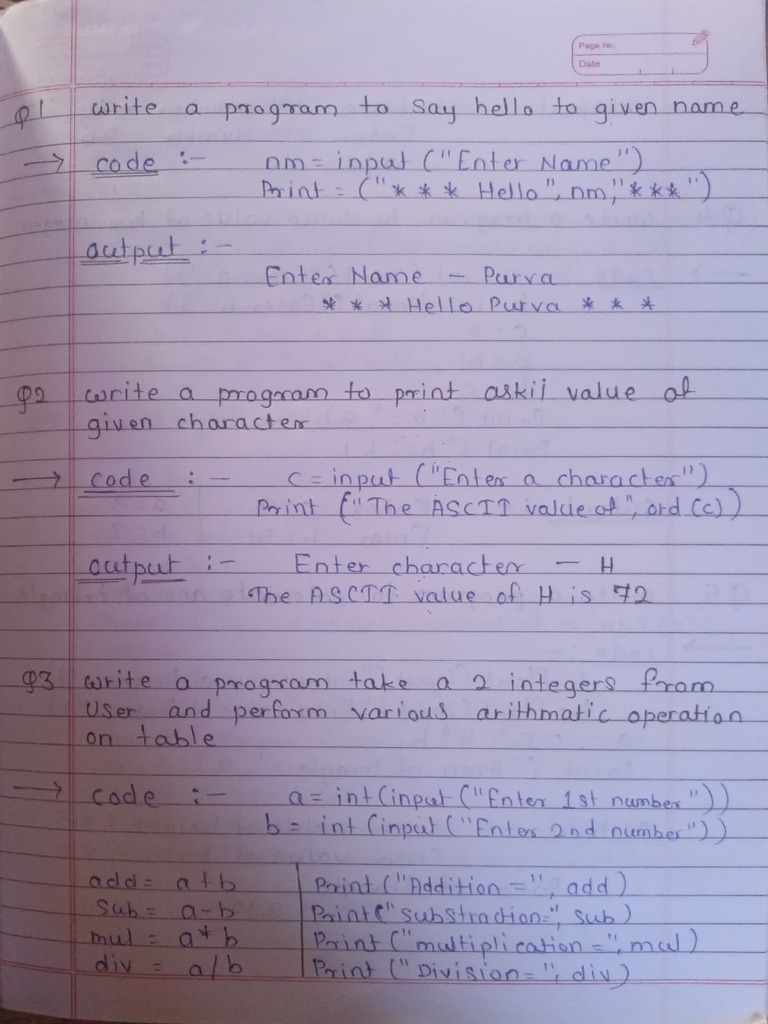 Page No.
Date
Q1 write a program to say hello to given name
→ code :- nm = input ("Enter Name")
Print = ("* * * Hello", nm,"***")
output :-
Enter Name - Purva
* * * Hello Purva * * *
Q2 write a program to print askii value of
given character
→ code :- c = input ("Enter a character")
Print ("The ASCII value of", ord (c))
output :- Enter character - H
The ASCII value of H is 72
Q3 write a program take a 2 integers from
User and perform various arithmatic operation
on table
→ code :- a = int (input ("Enter 1st number"))
b = int (input ("Enter 2nd number"))
add = a+b | Print ("Addition =", add)
Sub = a-b | Print ("substraction=", sub)
mul = a* b | Print ("multiplication =", mul)
div = a/b | Print ("Division= ", div)